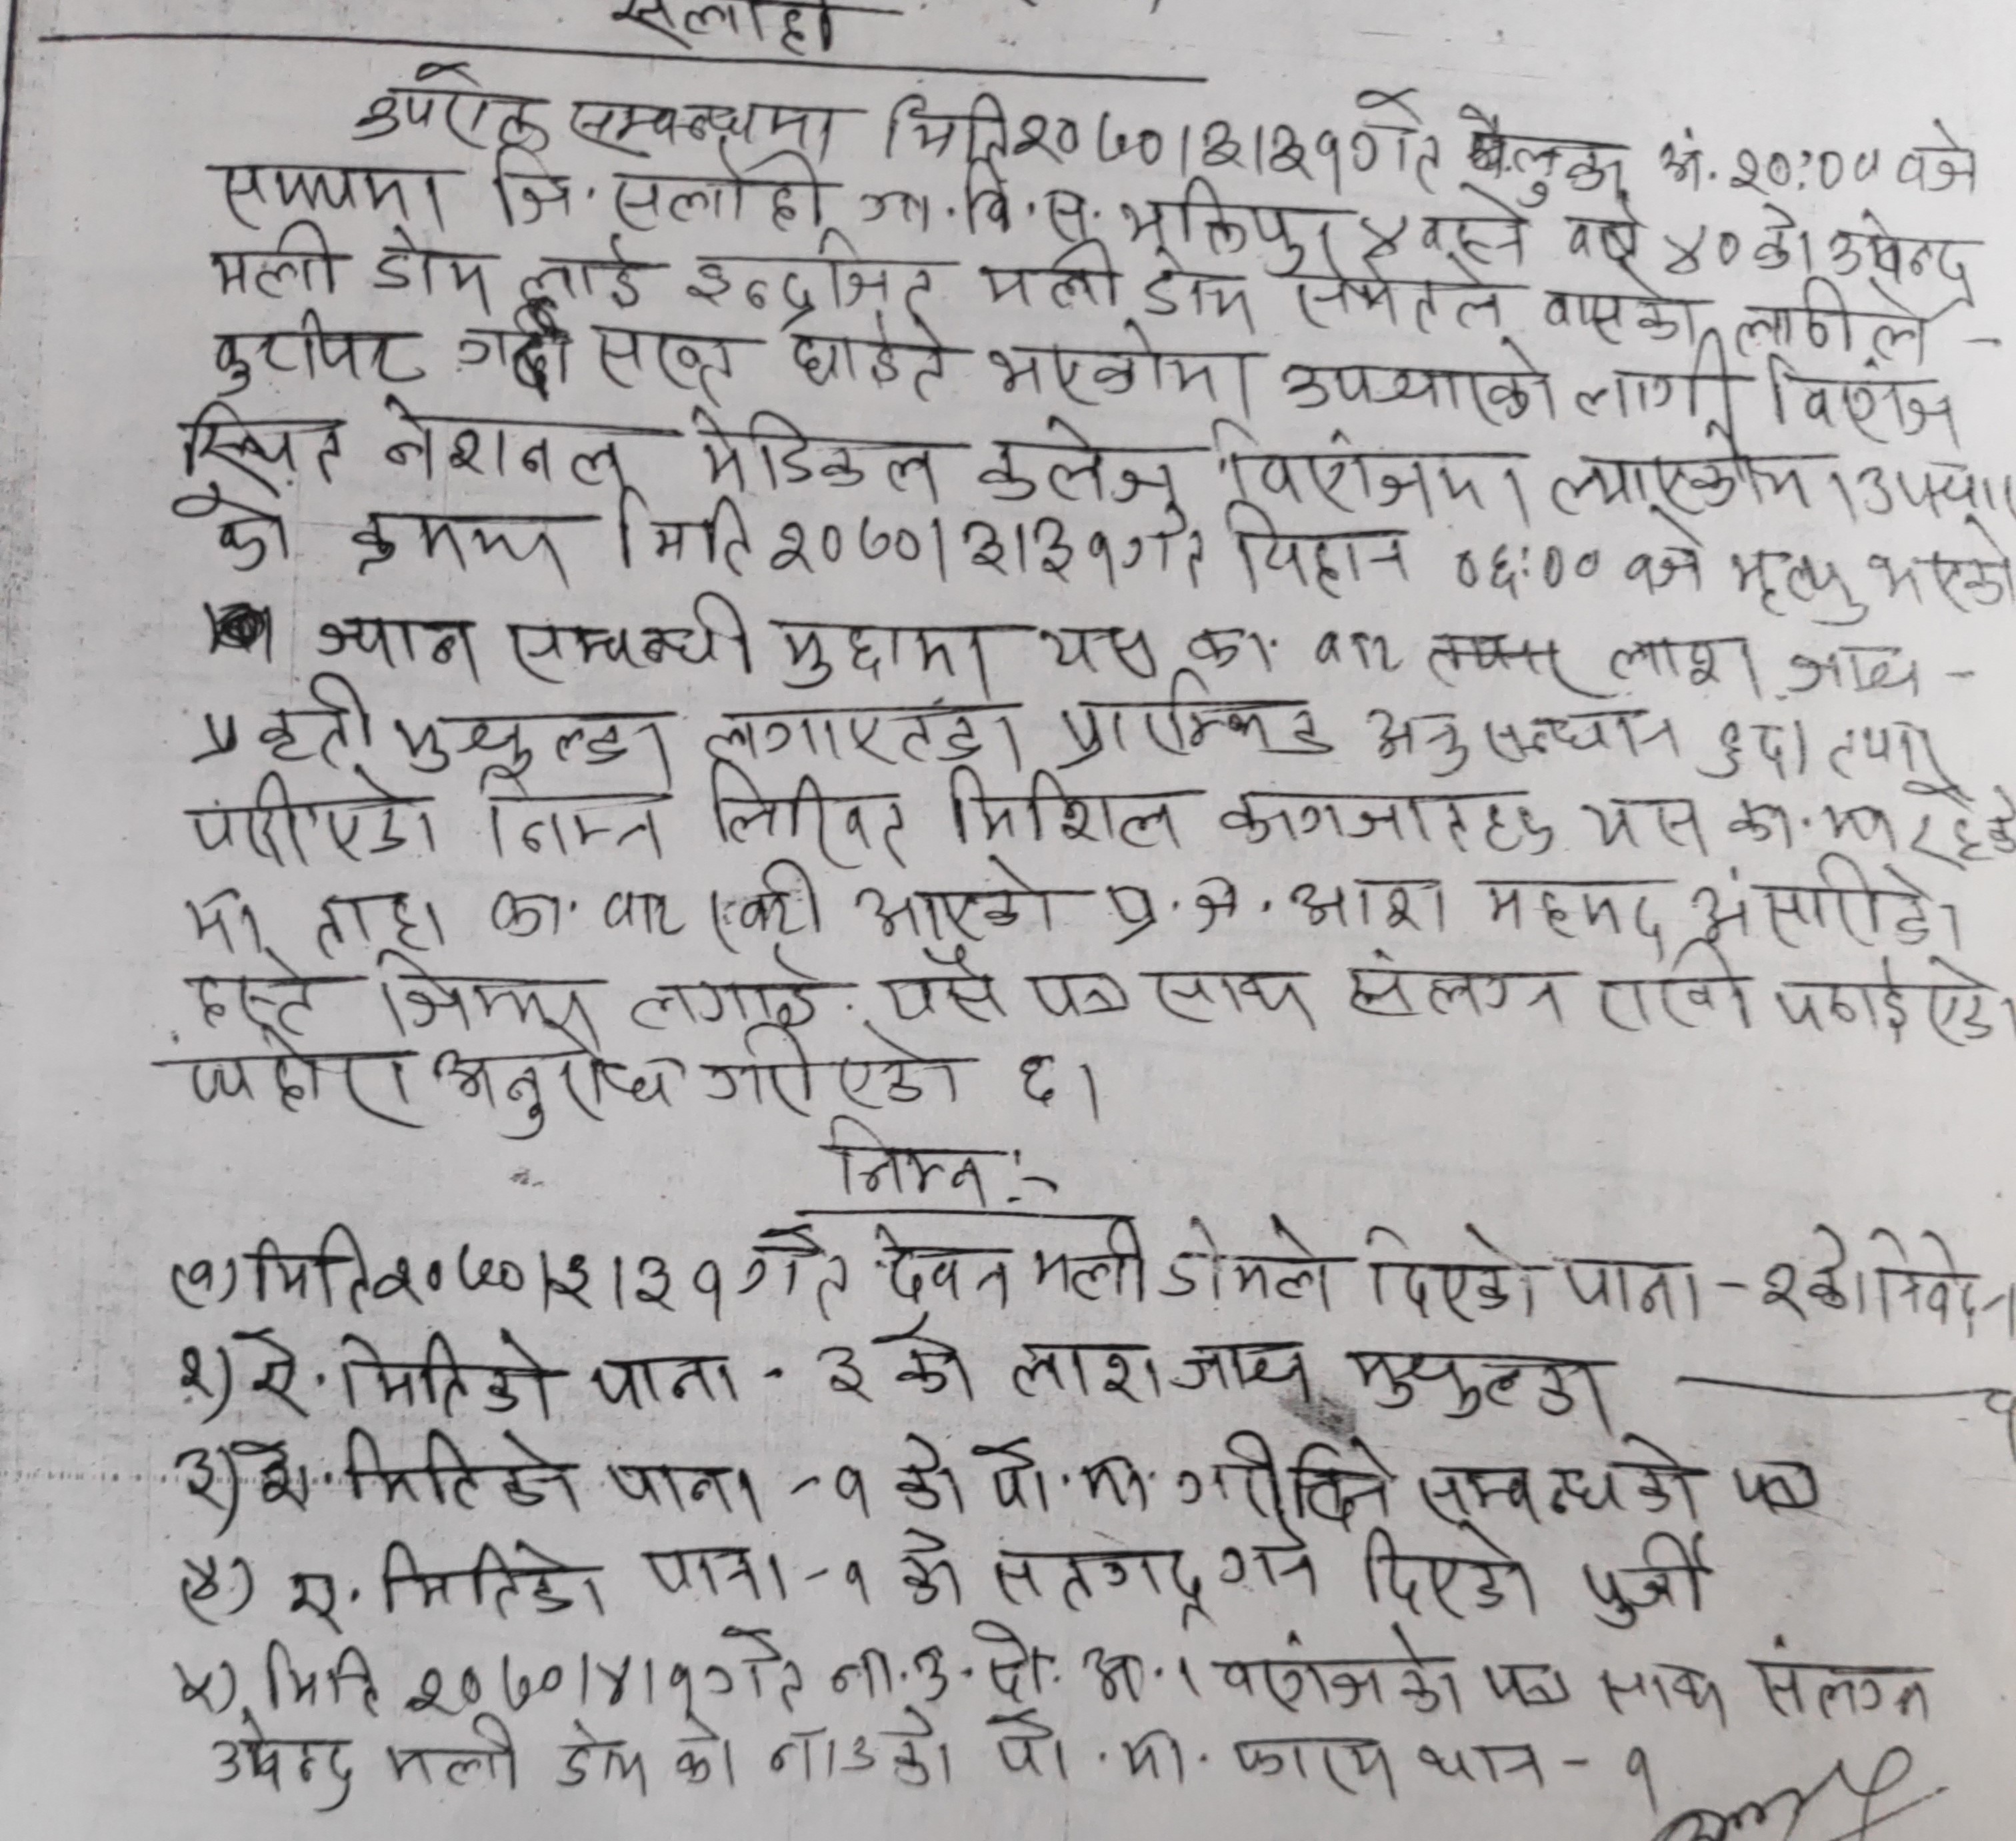 सर्लाही
उपरोक्त सम्बन्धमा मिति २०७०।३।३१ गते बेलुका अं. २०:०० वजे
समयमा जि. सर्लाही गा.वि.स. भक्तिपुर ४ बस्ने वर्ष ४० को उपेन्द्र
मली डोम लाई इन्द्रजित मली डोम समेतले वासको लाठीले -
कुटपिट गरी सख्त घाईते भएकोमा उपचारको लागी विरगंज
स्थित नेशनल मेडिकल कलेज विरगंजमा ल्याएकोमा उपचार
को क्रममा मिति २०७०।३।३१ गते विहान ०६:०० वजे मृत्यु भएको
ज्यान सम्बन्धी मुद्दामा यस का. वाट लाश जाच -
प्रकृती मुचुल्का लगाएतका प्रारम्भिक अनुसन्धान हुदा तयार
पारीएको निम्न लिखित मिशिल कागजातहरु यस का.मा रहेको
मा ताहा का. वाट खटी आएको प्र.ज. आश महमद अंसारीको
हस्ते जिम्मा लगाई यसै पत्र साथ संलग्न राखी पठाईएको
व्यहोरा अनुरोध गरीएको छ।
निम्न:-
१) मिति २०७०।३।३१ गते देवन मली डोमले दिएको पाना - २ को निवेदन
२) ऐ. मितिको पाना - ३ को लाश जाच मुचुल्का — १
३) ऐ. मितिको पाना - १ को पो.मा. गरीदिने सम्बन्धको पत्र
४) ऐ. मितिको पाना - १ को सतगद् गर्न दिएको पुर्जी
५) मिति २०७०।४।१ गते ना.उ.क्षे.अ. विरगंजको पत्र साथ संलग्न
उपेन्द्र मली डोम को नाउको पो.मा. फारम थान - १